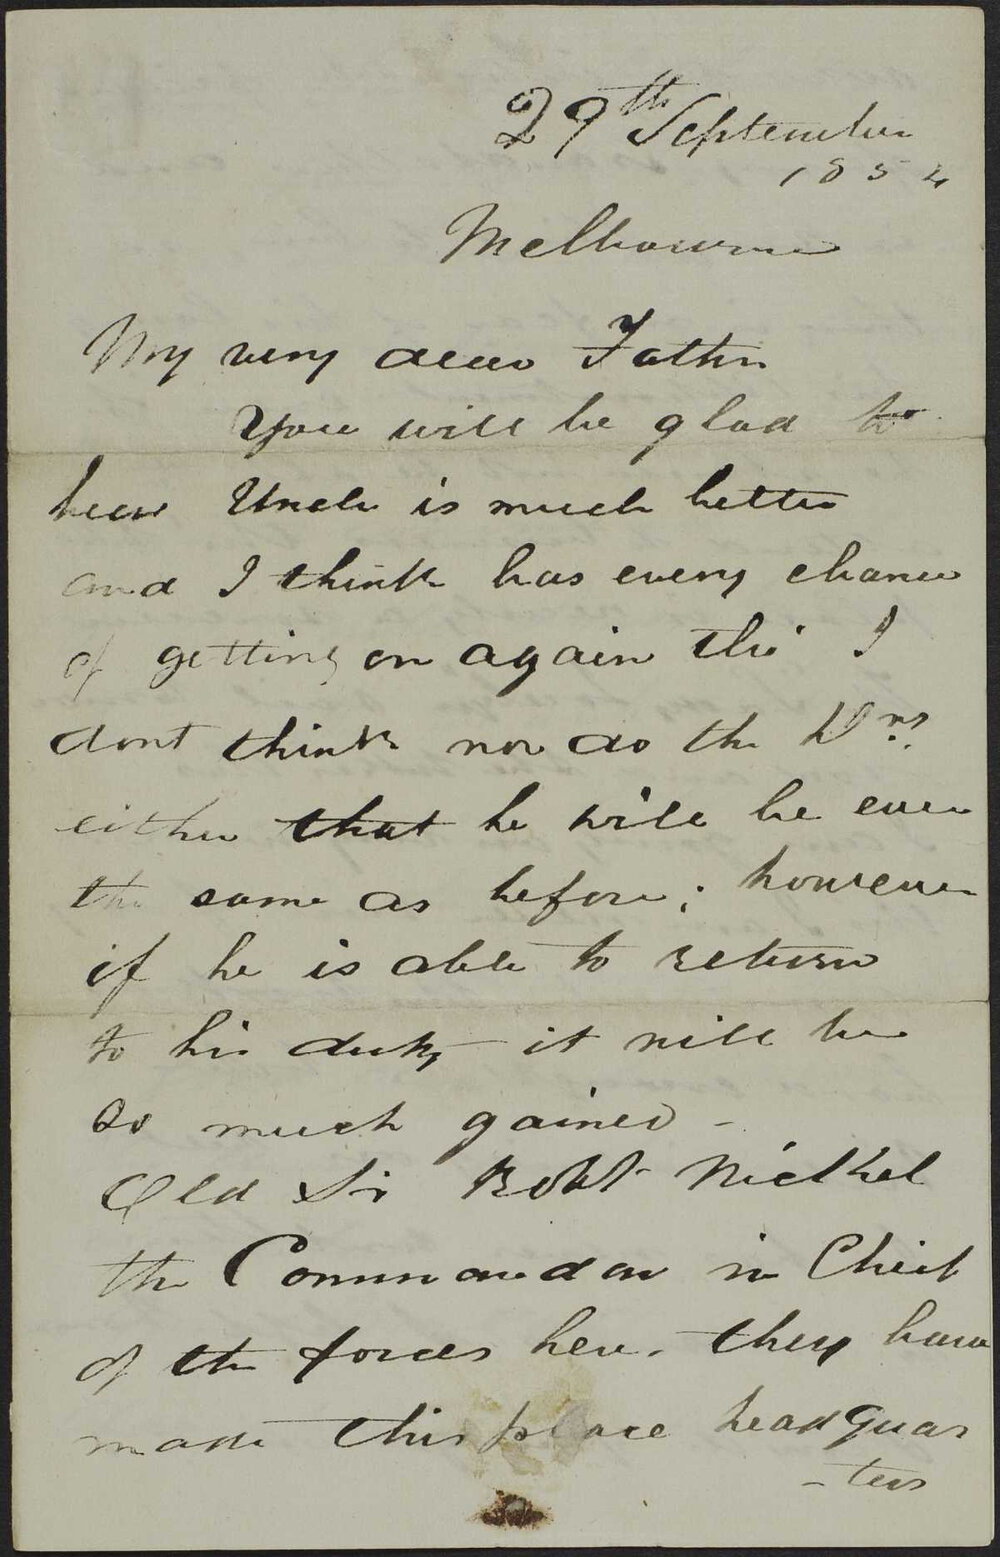 29th September
1854
Melbourne
My very dear Father
You will be glad to
hear Uncle is much better
and I think has every chance
of getting on again tho' I
dont think nor do the Drs.
either that he will be ever
the same as before; however
if he is able to return
to his duty it will be
so much gained -
Old Sir Robt Nickel
the Commander in Chief
of the forces here. they have
made this place headquar
-ters